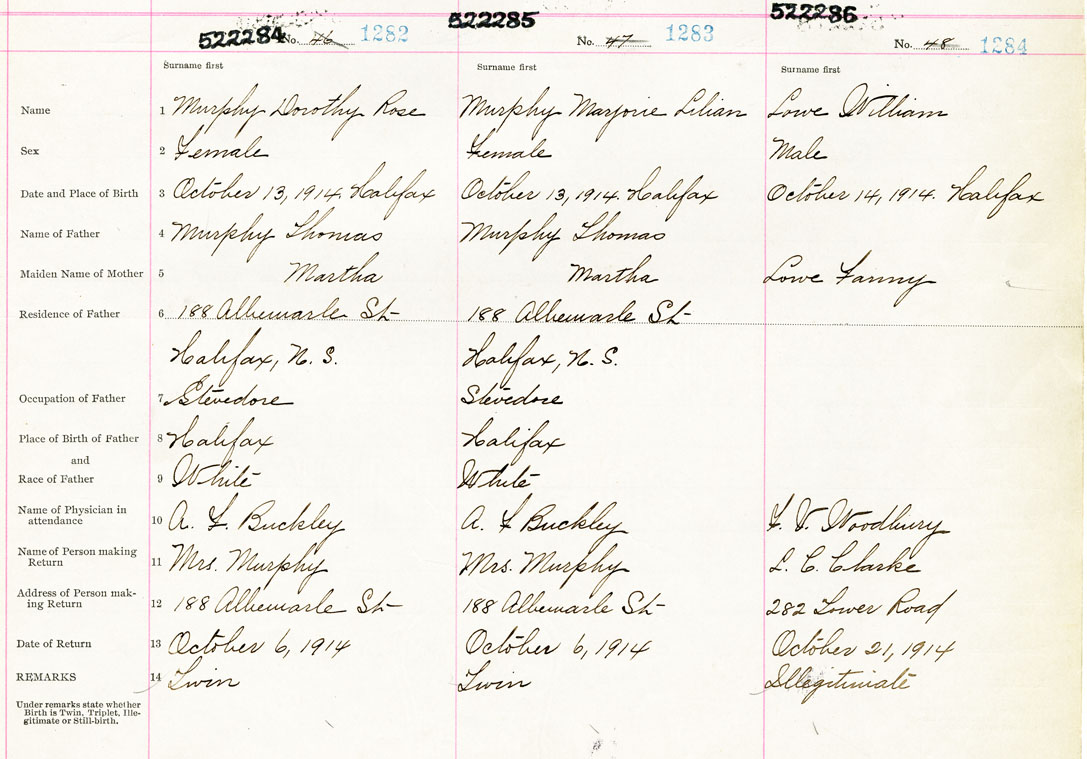 522284 522285 522286
No. 46 1282 No. 47 1283 No. 48 1284
Surname first Surname first Surname first
Name 1 Murphy Dorothy Rose Murphy Marjorie Lilian Lowe William
Sex 2 Female Female Male
Date and Place of Birth 3 October 13, 1914. Halifax October 13, 1914. Halifax October 14, 1914. Halifax
Name of Father 4 Murphy Thomas Murphy Thomas
Maiden Name of Mother 5 Martha Martha Lowe Fanny
Residence of Father 6 188 Albemarle St 188 Albemarle St
Halifax, N. S. Halifax, N. S.
Occupation of Father 7 Stevedore Stevedore
Place of Birth of Father 8 Halifax Halifax
and
Race of Father 9 White White
Name of Physician in
attendance 10 A. F. Buckley A. F Buckley F. V. Woodbury
Name of Person making
Return 11 Mrs. Murphy Mrs. Murphy L. C. Clarke
Address of Person mak-
ing Return 12 188 Albemarle St 188 Albemarle St 282 Lower Road
Date of Return 13 October 6, 1914 October 6, 1914 October 21, 1914
REMARKS 14 Twin Twin Illegitimate
Under remarks state whether
Birth is Twin. Triplet, Ille-
gitimate or Still-birth.